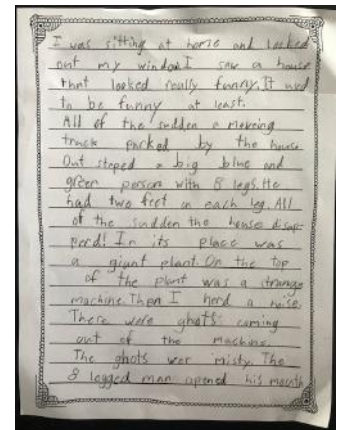 I was sitting at home and looked
out my window I saw a house
that looked really funny. It had
to be funny at least.
All of the sudden a moveing
truck parked by the house.
Out steped a big blue and
green person with 8 legs. He
had two feet on each leg. All
of the sudden the house disap-
perd! In its place was
a giant plant. On the top
of the plant was a strange
machine. Then I herd a noise.
There were ghots coming
out of the machine.
The ghots wer misty. The
8 legged man opened his mouth